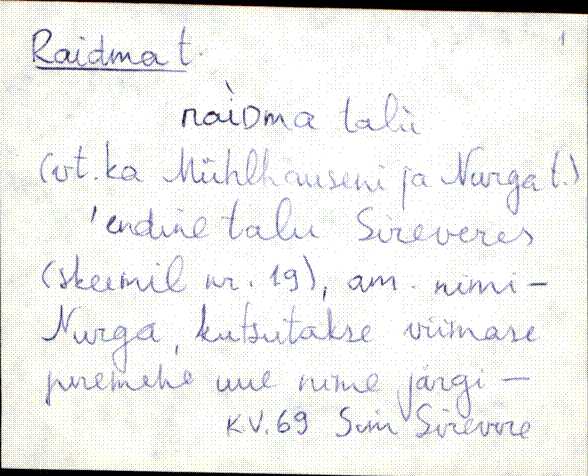 Raidma t. 1
raìDma talù
(vt. ka Mühlhauseni ja Nurga t.)
'endine talu Sireveres
(skeemil nr. 19), am. nimi –
Nurga, kutsutakse viimase
peremehe uue nime järgi –
KV. 69 Sim Sirevere